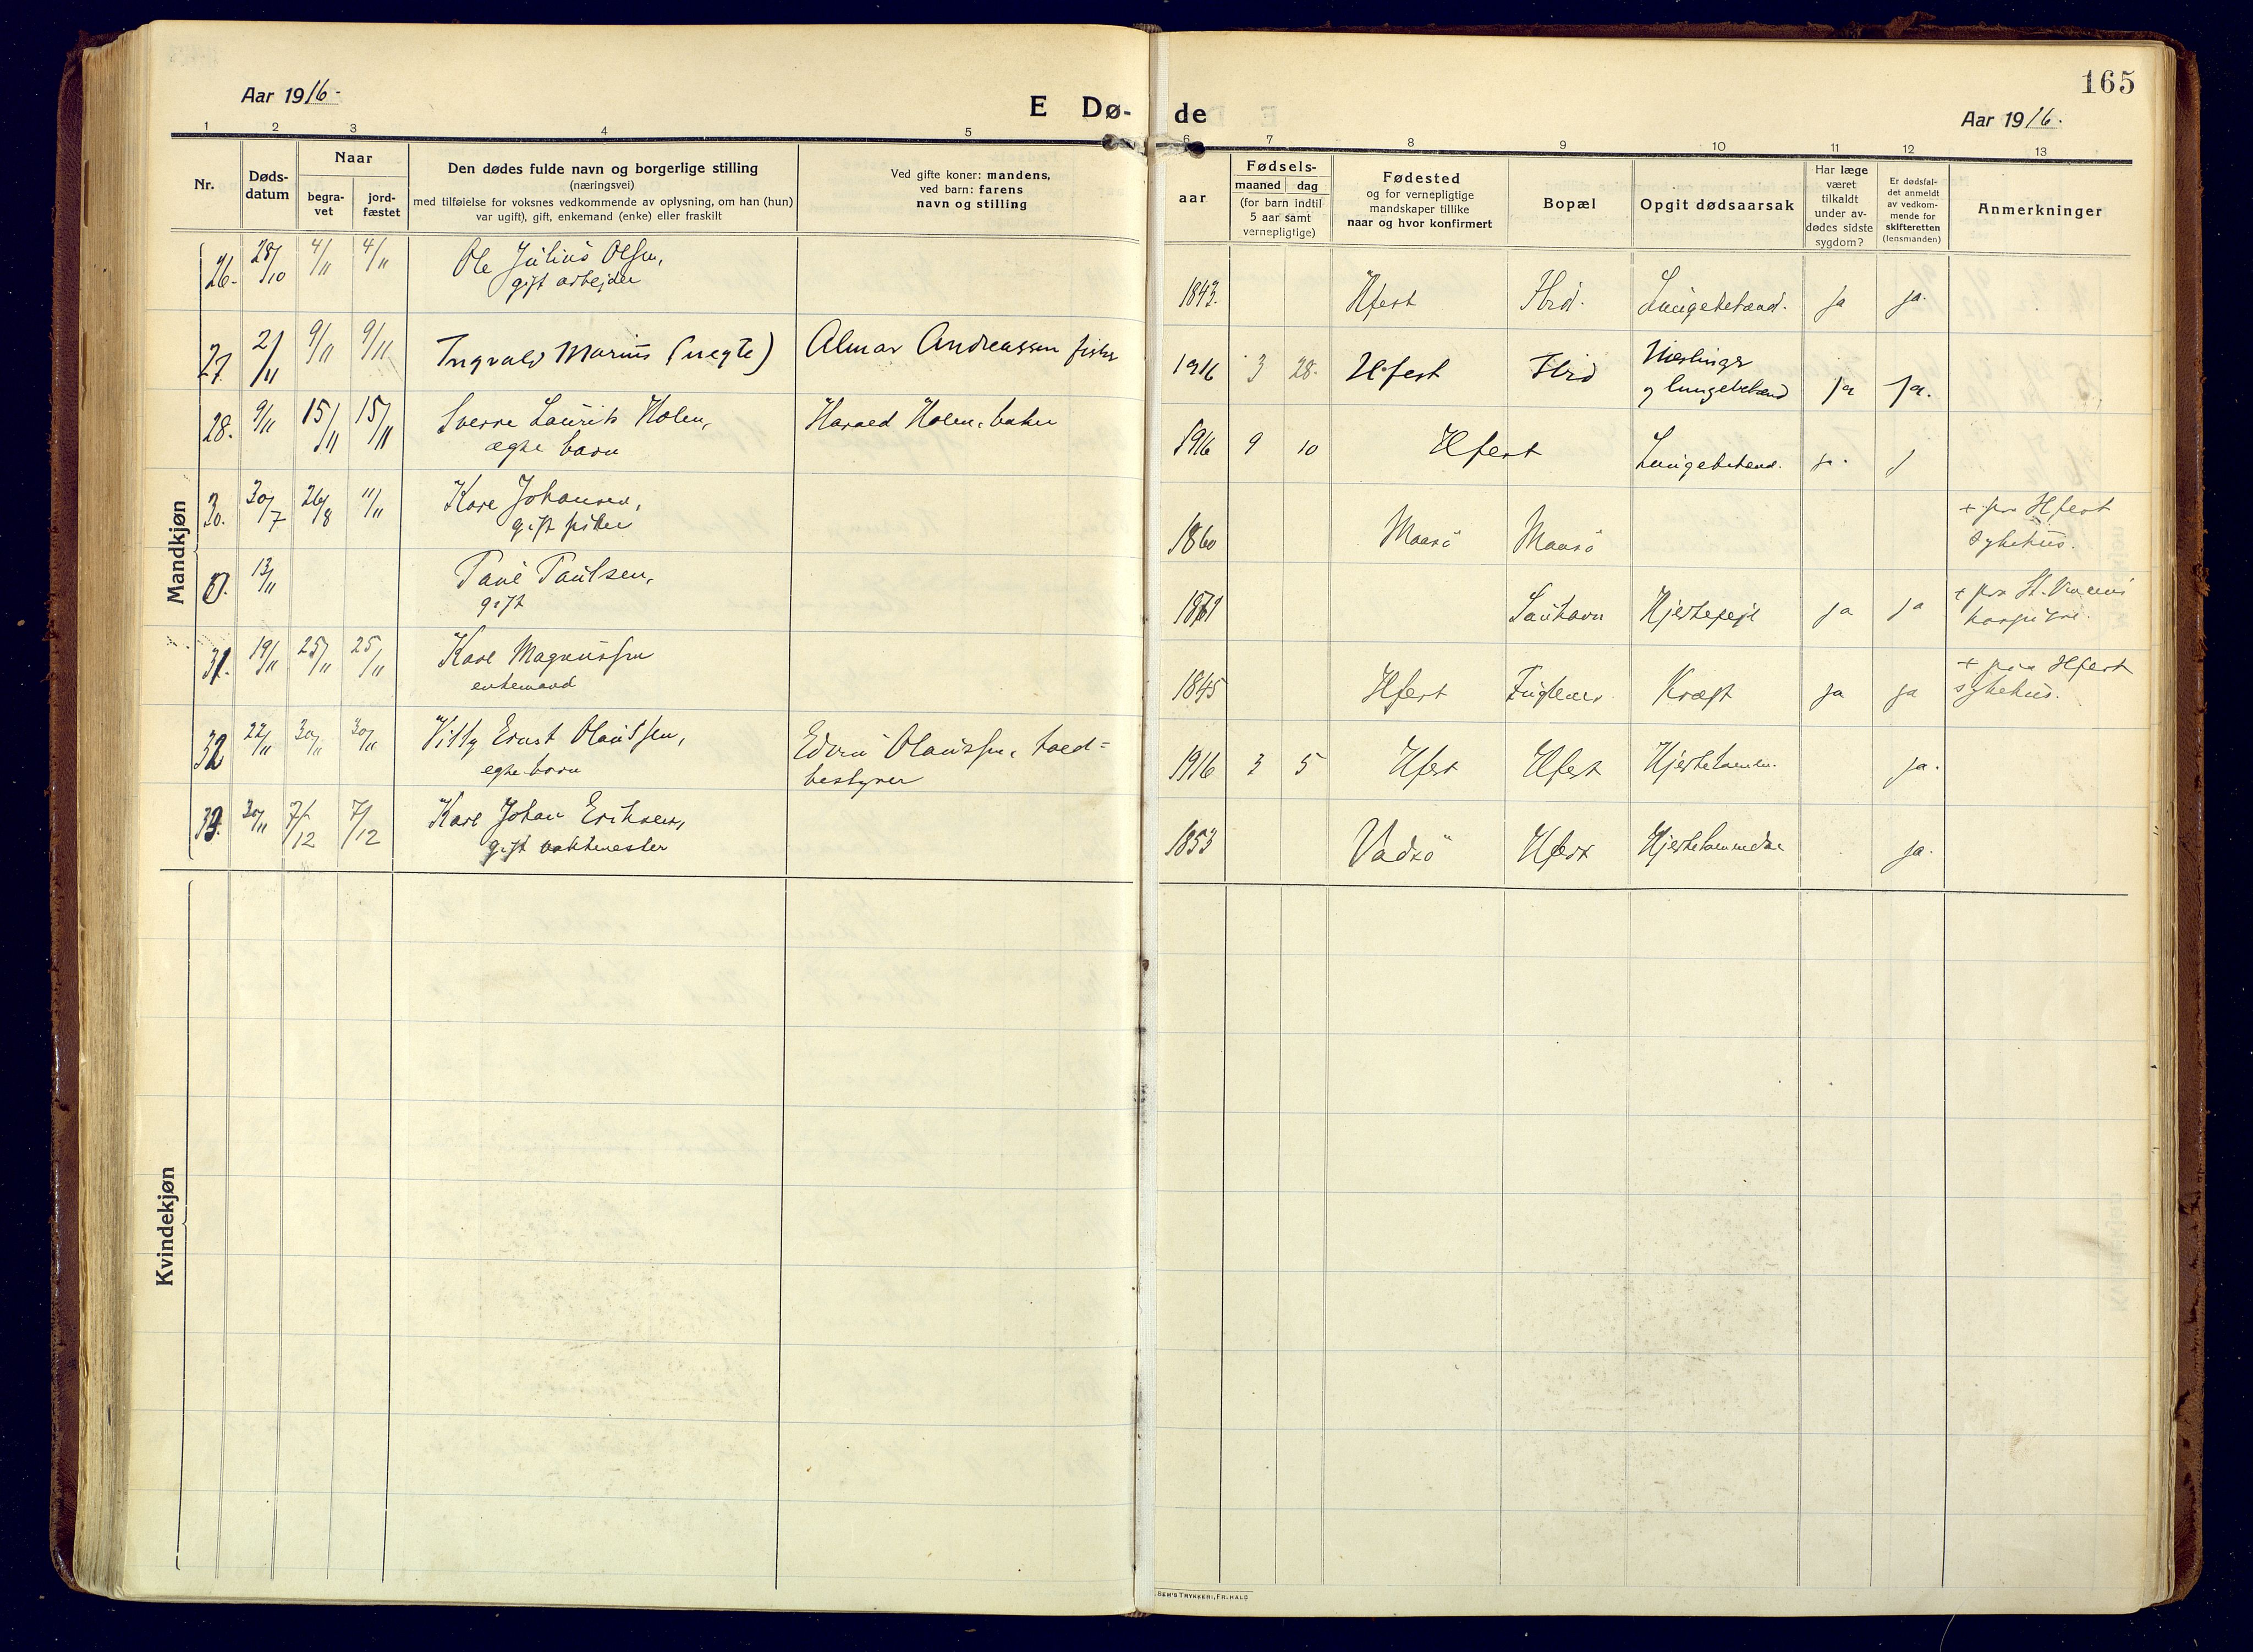 165
Aar 1916.
E Dø- de
Aar 1916.
1 2 3 4 5 6 7 8 9 10 11 12 13
Nr.
Døds-
datum
Naar
begra-
vet
jord-
fæstet
Den dødes fulde navn og borgerlige stilling
(næringsvei)
med tilføielse for voksnes vedkommende av oplysning, om han (hun)
var ugift), gift, enkemand (enke) eller fraskilt
Ved gifte koner: mandens,
ved barn: farens
navn og stilling
aar
Fødsels-
maaned dag
(for barn indtil
5 aar samt
vernepligtige)
Fødested
og for vernepligtige
mandskaper tillike
naar og hvor konfirmert
Bopæl
Opgit dødsaarsak
Har læge
været
tilkaldt
under av-
dødes sidste
sygdom?
Er dødsfal-
det anmeldt
av vedkom-
mende for
skifteretten
(lensmanden)
Anmerkninger
Mandkjøn
26. 28/10 4/11 4/11 Ole Julius Olsen, 1843. Hfest Lungebetænd. ja ja.
gift arbejder
27. 2/11 9/11 9/11 Ingvald Marius (uegte) Almar Andreassen fisker 1916 3 28. Hfest ja ja.
og lungebetænd
28. 9/11 15/11 15/11 Sverre Laurits Holen, Harald Holen, baker 1916 9 10 Hfest Lungebetænd. ja.
ægte barn
30. 30/7 26/8 11/11 Kare Johansen, 1860 Maasö Maasö + paa Hfest
gift fisker sykehus.
0. 13/11 Paulsen, Hjertefejl ja ja + paa St.
gift
31. 19/11 25/11 25/11 Karl Magnussen 1845 Hfest Fuglenes Kræft ja ja + paa Hfest
enkemand sykehus.
32 22/11 30/11 30/11 Willy Ernst Olaussen, Olaussen, 1916 3 5 Hfest Hfest ja.
egte barn bestyrer
33. 30/11 7/12 7/12 Karl Johan Eriksen, 1853 Vadsö Hfest Hjertelammelse ja.
gift vaktmester
Kvindekjøn
SEM'S TRYKKERI, FR. HALD